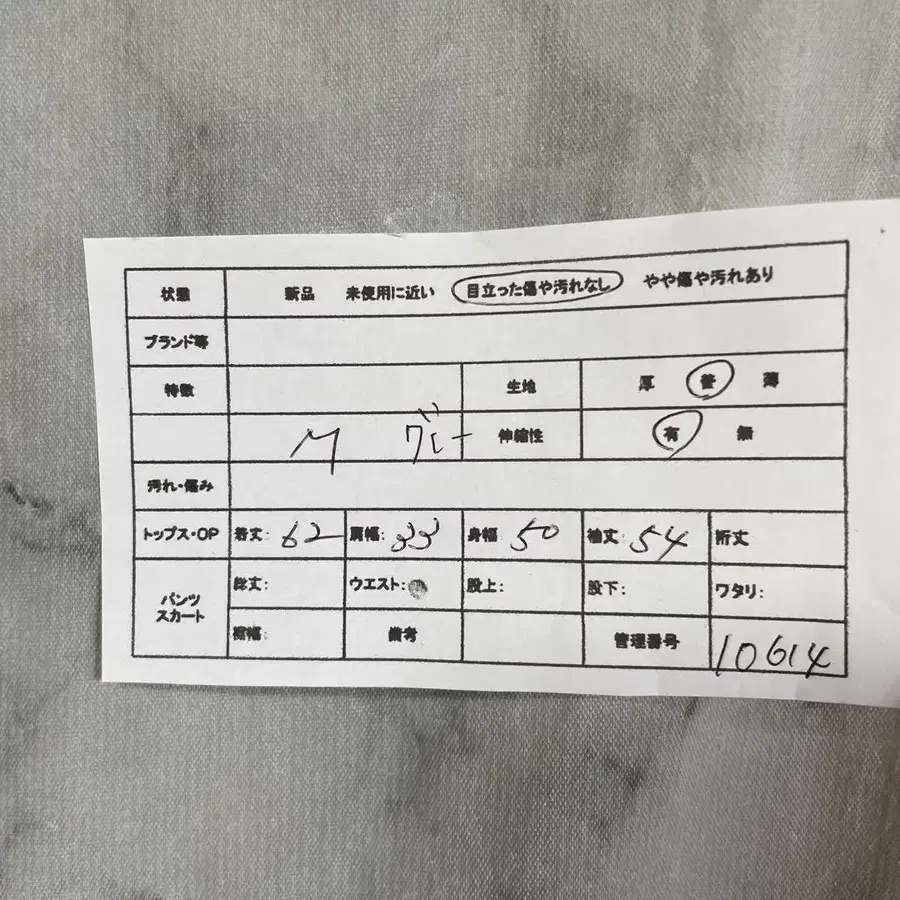 状態 新品 未使用に近い 目立った傷や汚れなし やや傷や汚れあり
ブランド等
特徴 生地 厚 普 薄
M グレー 伸縮性 有 無
汚れ・傷み
トップス・OP 着丈: 62 肩幅: 33 身幅: 50 袖丈: 54 裄丈
パンツ スカート 総丈: ウエスト: 股上: 股下: ワタリ:
裾幅: 備考 管理番号 10614